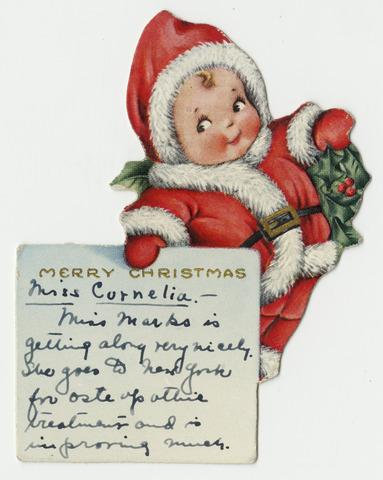 MERRY CHRISTMAS
Miss Cornelia.—
Miss Marks is
getting along very nicely.
She goes to New York
for osteopathic
treatment and is
improving much.